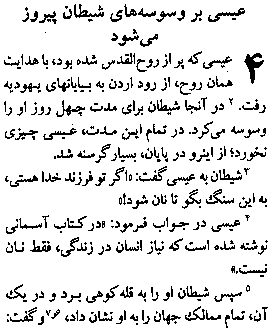 عیسی بر وسوسه‌های شیطان پیروز
می‌شود
۴ عیسی که پر از روح‌القدس شده بود، با هدایت
همان روح، از رود اردن به بیابانهای یهودیه
رفت. ۲ در آنجا شیطان برای مدت چهل روز او را
وسوسه می‌کرد. در تمام این مدت، عیسی چیزی
نخورد؛ از اینرو در پایان، بسیار گرسنه شد.
۳ شیطان به عیسی گفت: «اگر تو فرزند خدا هستی،
به این سنگ بگو تا نان شود!»
۴ عیسی در جواب فرمود: «در کتاب آسمانی
نوشته شده است که نیاز انسان در زندگی، فقط نان
نیست.»
۵ سپس شیطان او را به قله کوهی برد و در یک
آن، تمام ممالک جهان را به او نشان داد، ۶و۷ و گفت: